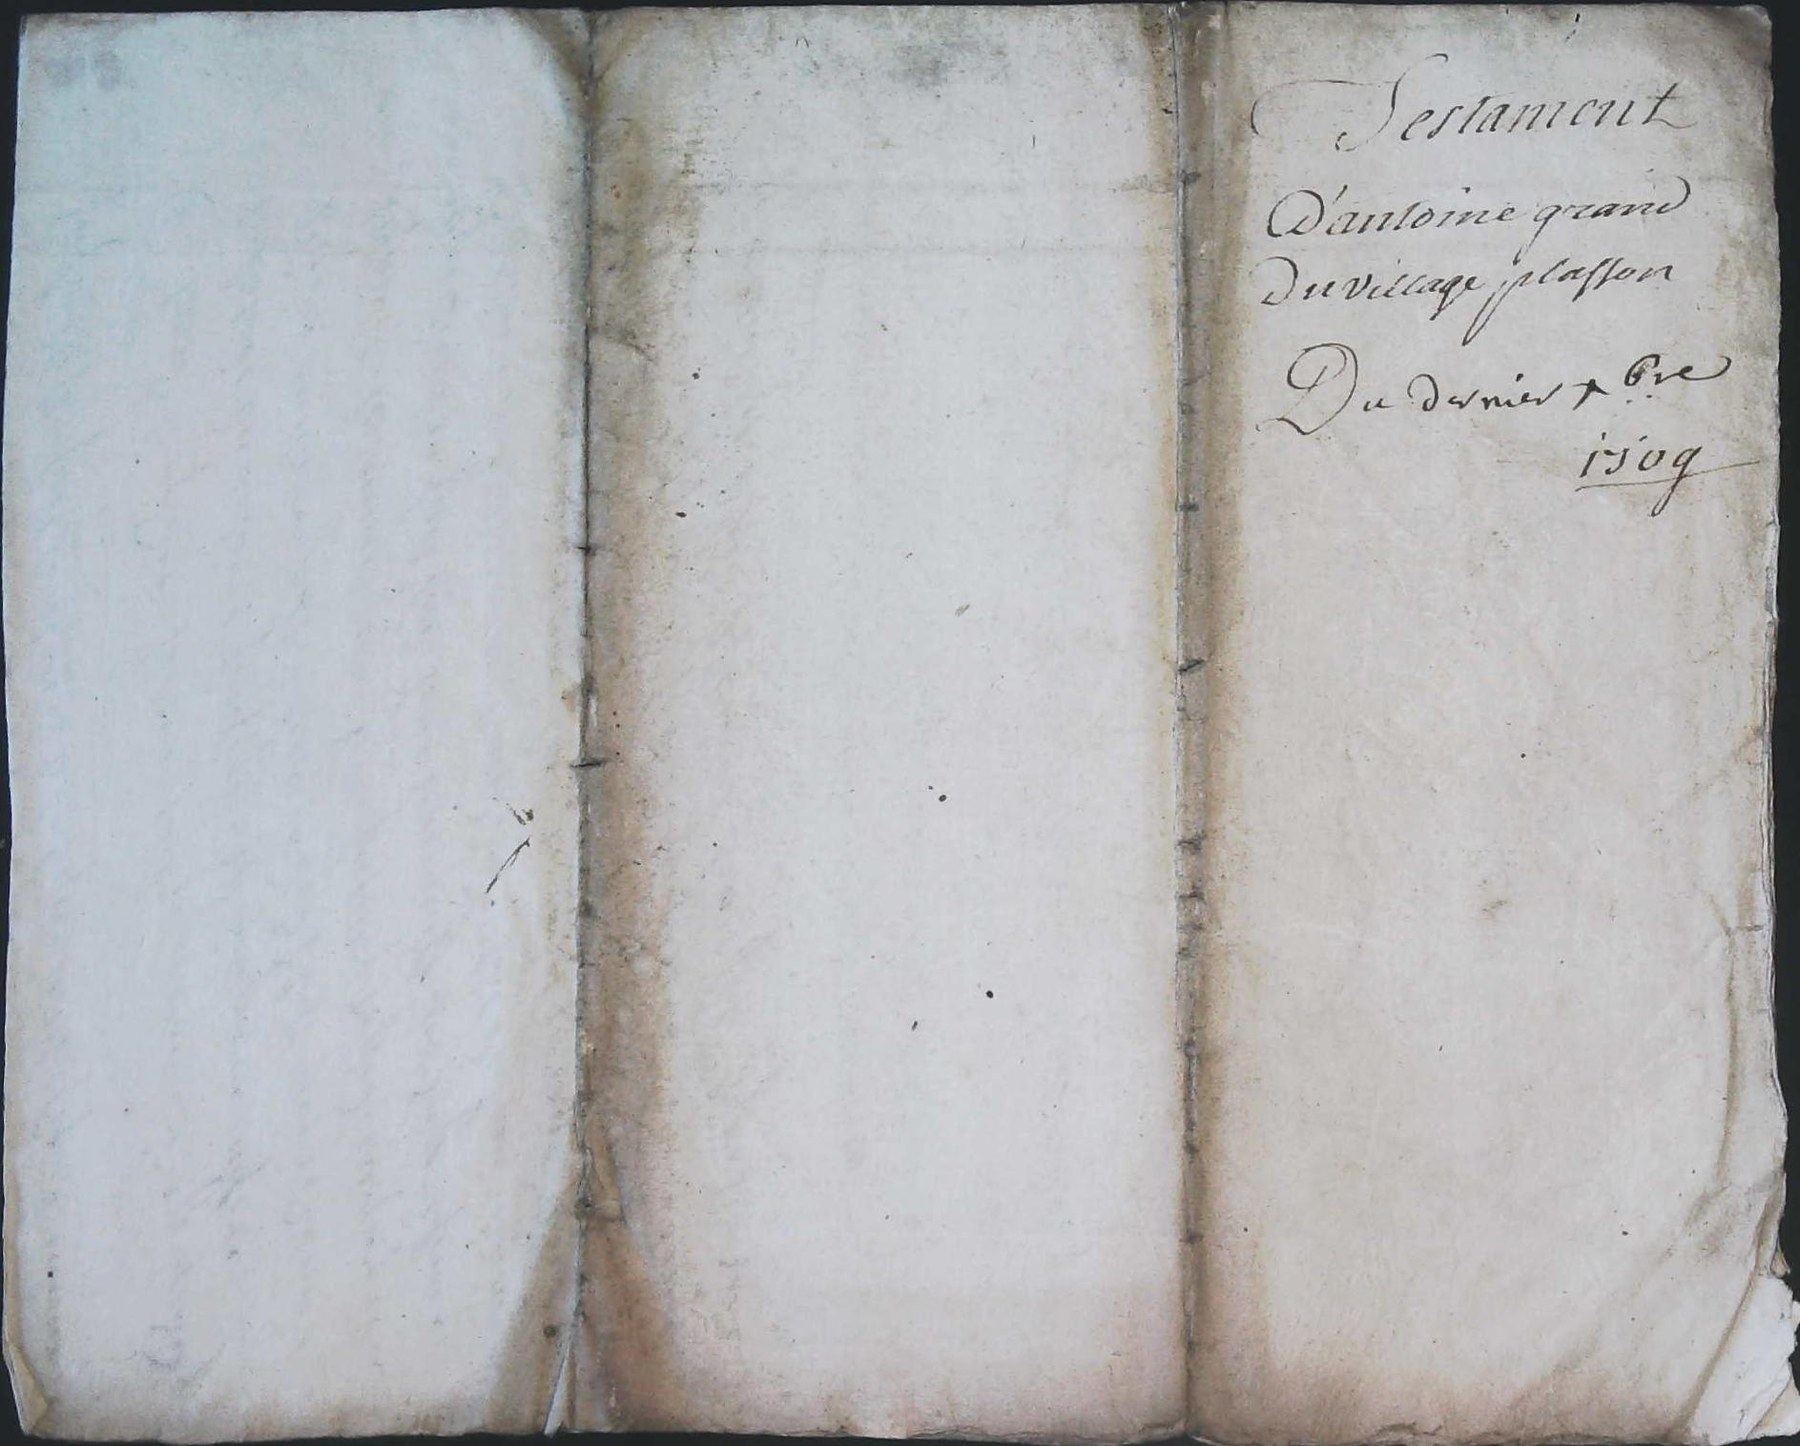 Testament
D'antoine grand
Du village plasson
Du dernier xbre
1509